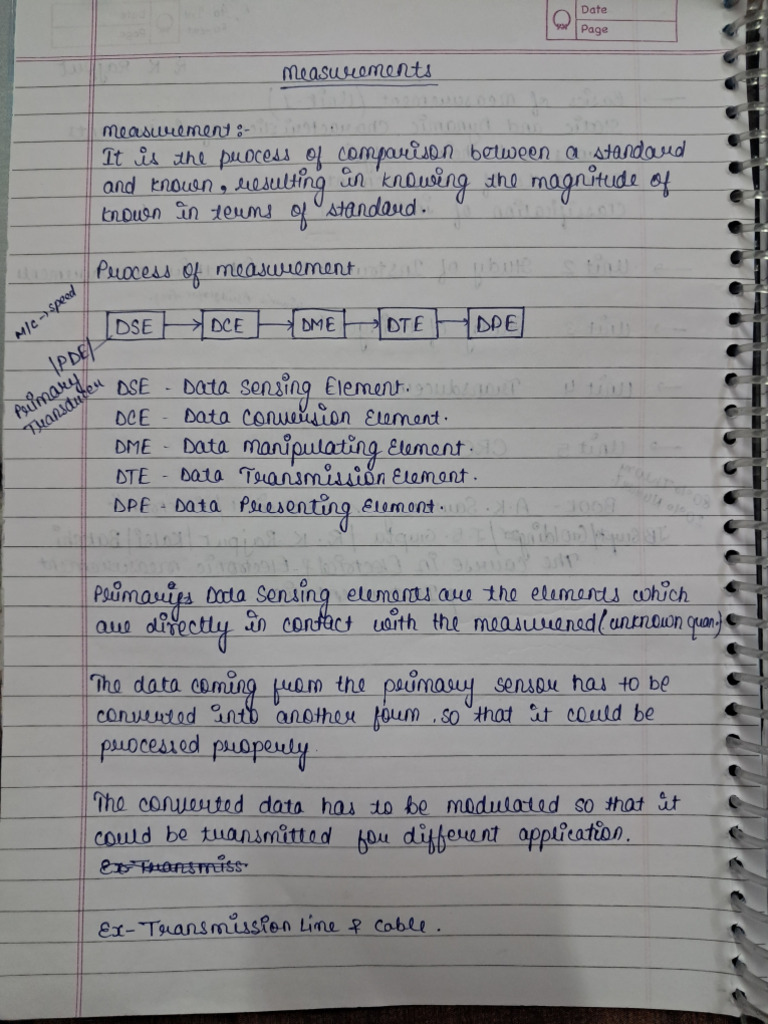 Date
Page
Measurements
Measurement:-
It is the process of comparison between a standard
and known, resulting in knowing the magnitude of
known in terms of standard.
Process of measurement
M/C → speed
DSE → DCE → DME → DTE → DPE
|PDE|
Primary
Transducer
DSE - Data Sensing Element.
DCE - Data Conversion Element.
DME - Data Manipulating Element.
DTE - Data Transmission Element.
DPE - Data Presenting Element.
Data Sensing elements are the elements which
are directly in contact with the measurened (unknown quan.)
The data coming from the primary sensor has to be
converted into another form, so that it could be
processed properly.
The converted data has to be modulated so that it
could be transmitted for different application.
Ex- Transmiss.
Ex- Transmission Line & Cable.